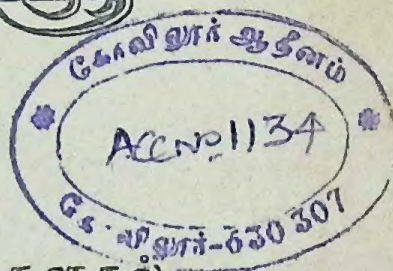 கோவிலூர் ஆதீனம்
ACC NO. 1134
கோவிலூர்-630 307